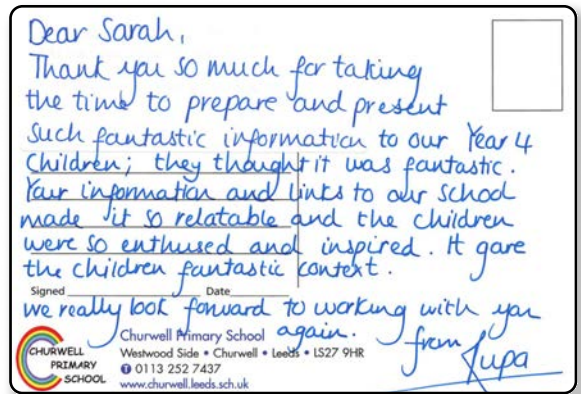 Dear Sarah,
Thank you so much for taking
the time to prepare and present
such fantastic information to our Year 4
children; they thought it was fantastic.
Your information and links to our school
made it so relatable and the children
were so enthused and inspired. It gave
the children fantastic context.
Signed Date
we really look forward to working with you
again.
from Rupa
Churwell Primary School
Westwood Side • Churwell • Leeds • LS27 9HR
0113 252 7437
www.churwell.leeds.sch.uk
CHURWELL
PRIMARY
SCHOOL